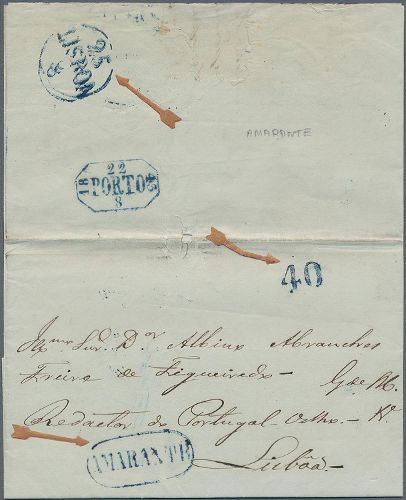 25
LISBOA
8
AMARANTE
22
18 PORTO 43
8
40
Exmo Snr. Dor Albino Abranches
Freire de Figueiredo - G de M.
Redactor do Portugal Velho. - N.
Lisbôa.
AMARANTE